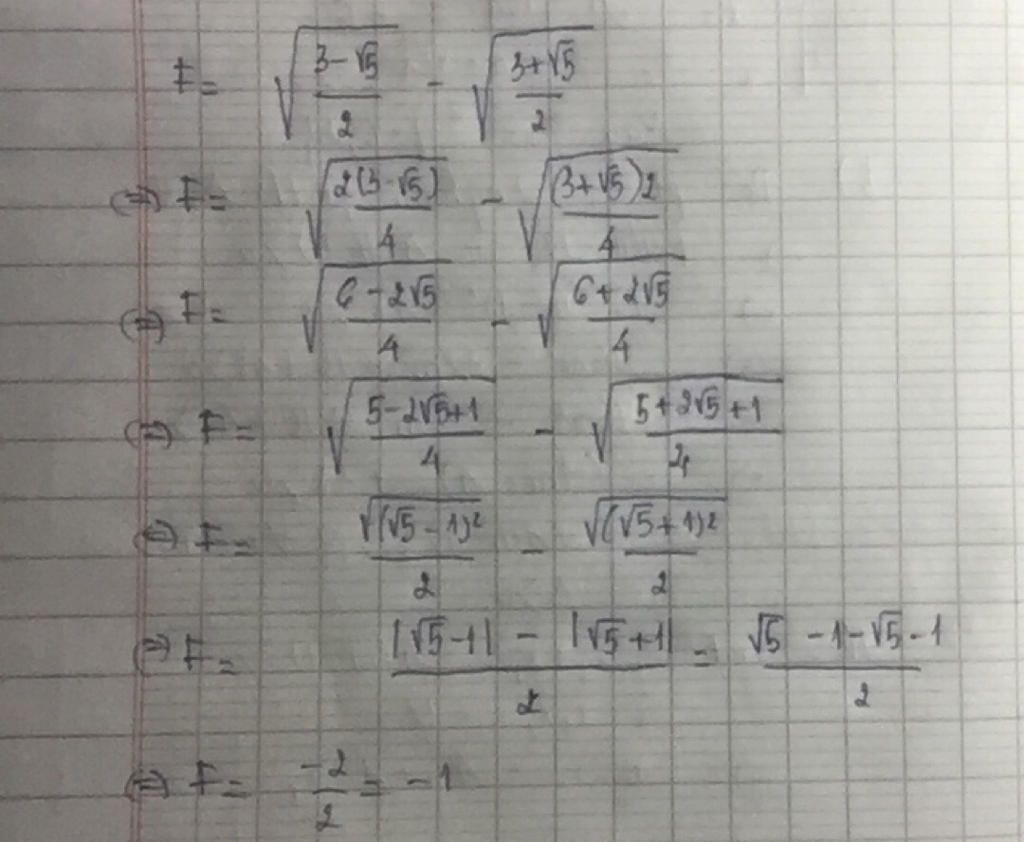 F = √((3-√5)/2) - √((3+√5)/2)
(=) F = √((2(3-√5))/4) - √(((3+√5)2)/4)
(=) F = √((6-2√5)/4) - √((6+2√5)/4)
(=) F = √((5-2√5+1)/4) - √((5+2√5+1)/4)
(=) F = √((√5-1)²)/2 - √((√5+1)²)/2
(=) F = (|√5-1| - |√5+1|)/2 = (√5-1-√5-1)/2
(=) F = -2/2 = -1